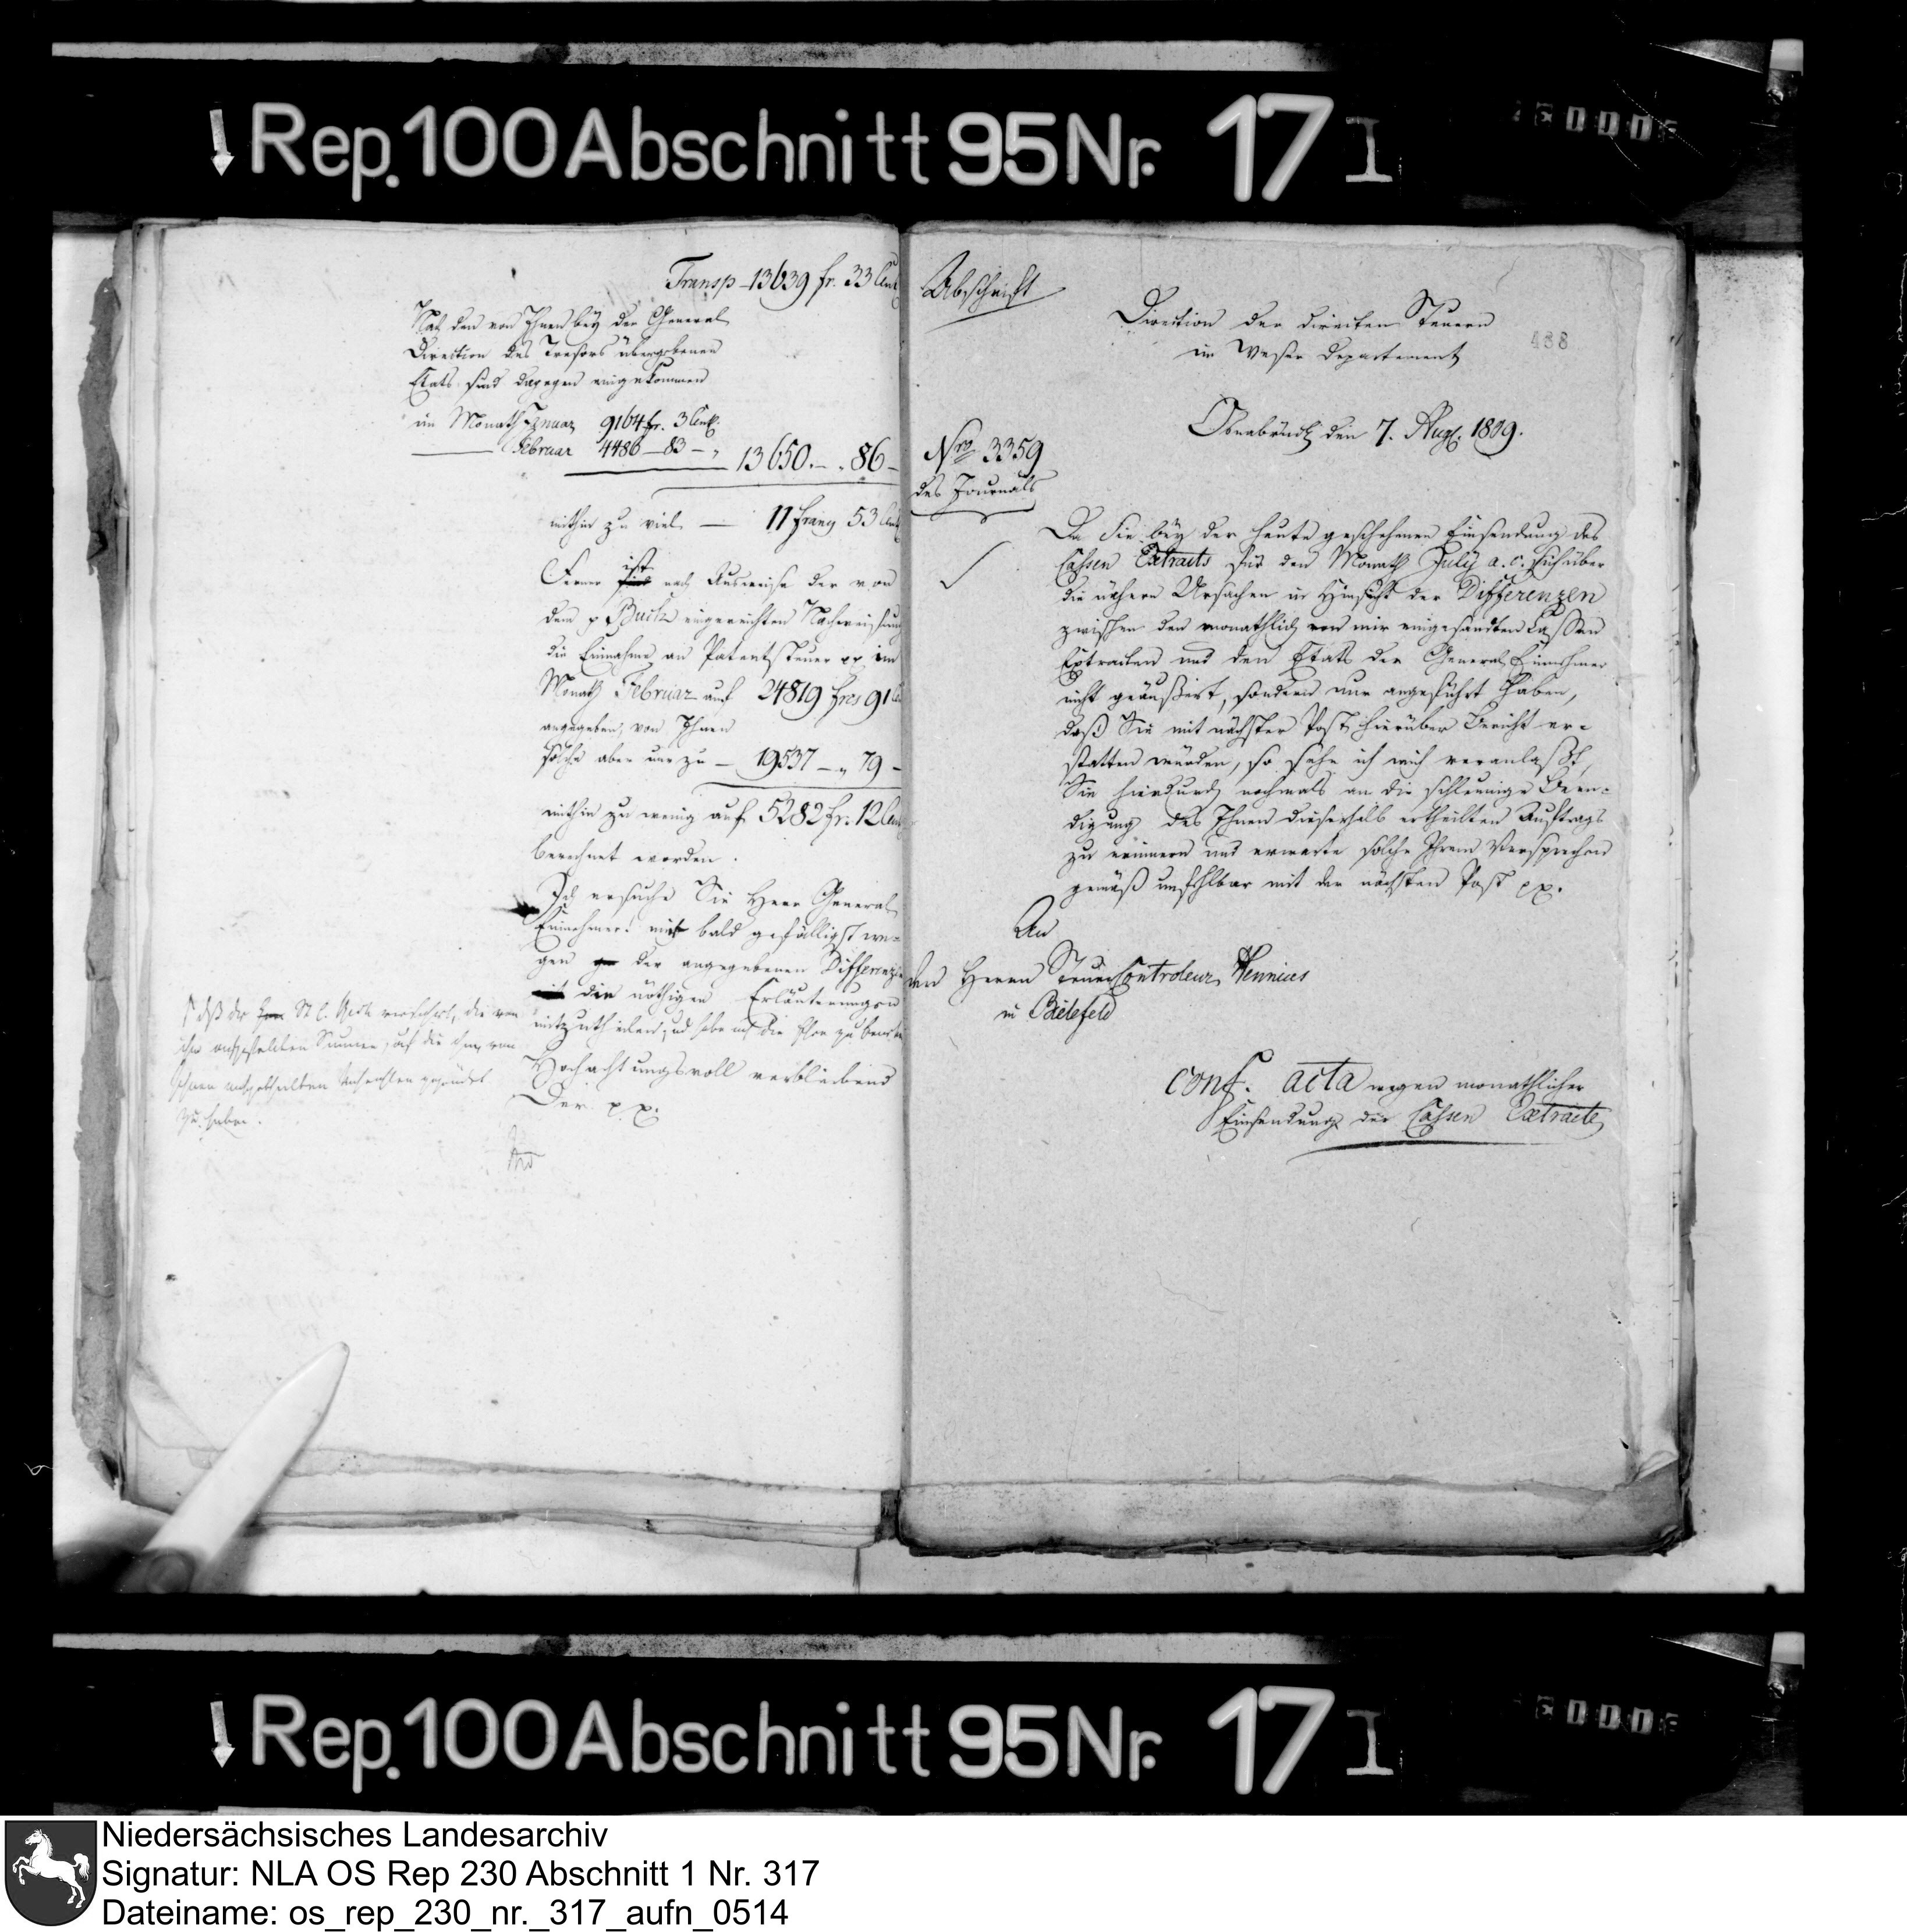 Rep. 100 Abschnitt 95 Nr. 17 I
Transp – 13639 fr. 33 Cent
Nach den von Ihnen bey der General
Direction des Tresors übergebenen
Etats sind dagegen eingekommen
im Monath Januar 9164 fr. 3 Cent.
Februar 4486 – 83 –
13650. – 86 –
mithin zu viel — 11 Franz 53 Cent
Ferner ist nach Ausweise der von
dem p Buch eingereichten Nachweisung
die Einnahme an Patentsteuer pp im
Monath Februar auf 24819 frcs 91
angegeben, von Ihnen
solche aber nur zu – 19537 – „ 79 –
mithin zu wenig auf 5282 fr. 12 Cent
berechnet worden.
Ich ersuche Sie Herr General
Einnehmer! mich bald gefälligst we-
gen der angegebenen Differenzen
die nöthigen Erläuterungen
mitzutheilen, und habe noch die Ehre zu bemerken
daß der St C. versichert, die von
ihm aufgestellten Summen, auf die ihm von
Ihnen mitgetheilten gegründet
zu haben.
Hochachtungsvoll verbleibend
Der p. p.
Abschrift
Direction der directen Steuern
im Weser Departement
438
Osnabrück den 7. Aug. 1809.
Nro 3359
des Journals
Da Sie bey der heute geschehenen Einsendung des
Cassen Extracts für den Monath July a. c. sich über
die nähern Ursachen in Hinsicht der Differenzen
zwischen den monathlich von mir eingesandten Cassen
Extracten und den Etats der General Einnehmer
nicht geäußert, sondern nur angeführt haben,
daß Sie mit nächster Post hierüber Bericht er-
statten würden, so sehe ich mich veranlaßt,
Sie hierdurch nochmals an die schleunige Been-
digung des Ihnen dieserhalb ertheilten Auftrags
zu erinnern und erwarte solche Ihrem Versprechen
gemäß unfehlbar mit der nächsten Post pp.
An
den Herrn Steuer Controleur Hennices
in Bielefeld
conf. acta wegen monathlicher
Einsendung der Cassen Extracte
Rep. 100 Abschnitt 95 Nr. 17 I
Niedersächsisches Landesarchiv
Signatur: NLA OS Rep 230 Abschnitt 1 Nr. 317
Dateiname: os_rep_230_nr._317_aufn_0514